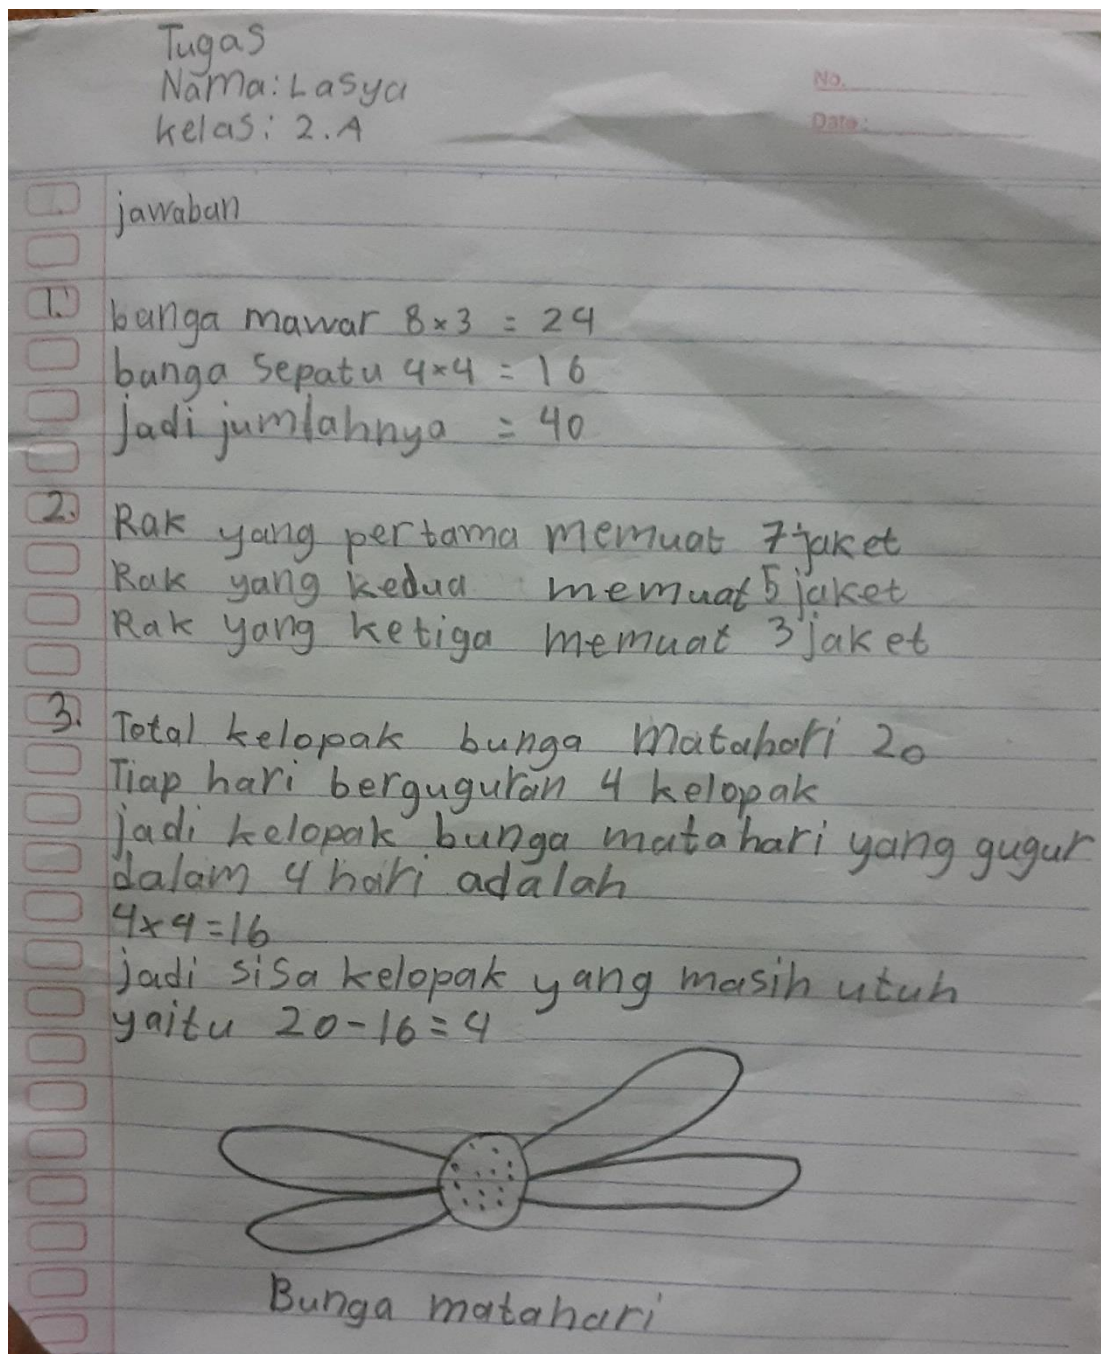 Tugas
Nama: Lasya
No.
kelas: 2.A
Date:
jawaban
1. bunga mawar 8 x 3 = 24
bunga sepatu 4 x 4 = 16
jadi jumlahnya = 40
2. Rak yang pertama memuat 7 jaket
Rak yang kedua memuat 5 jaket
Rak yang ketiga memuat 3 jaket
3. Total kelopak bunga matahari 20
Tiap hari berguguran 4 kelopak
jadi kelopak bunga matahari yang gugur
dalam 4 hari adalah
4 x 4 = 16
jadi sisa kelopak yang masih utuh
yaitu 20 - 16 = 4
Bunga matahari